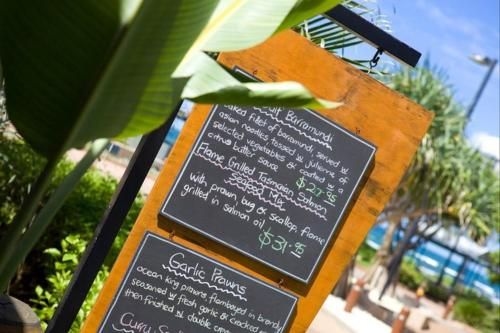 Barramundi
baked fillet of barramundi, served w
asian noodles, tossed w julienne of
selected vegetables & coated w a
citrus butter sauce $27.95
Flame Grilled Tasmanian Salmon
Seafood Mix
with prawn, bug & scallop, flame
grilled in salmon oil
$31.95
Garlic Prawns
ocean king prawns flamboyed in brandy
seasoned w fresh garlic & cracked
then finished w double crem
Curry